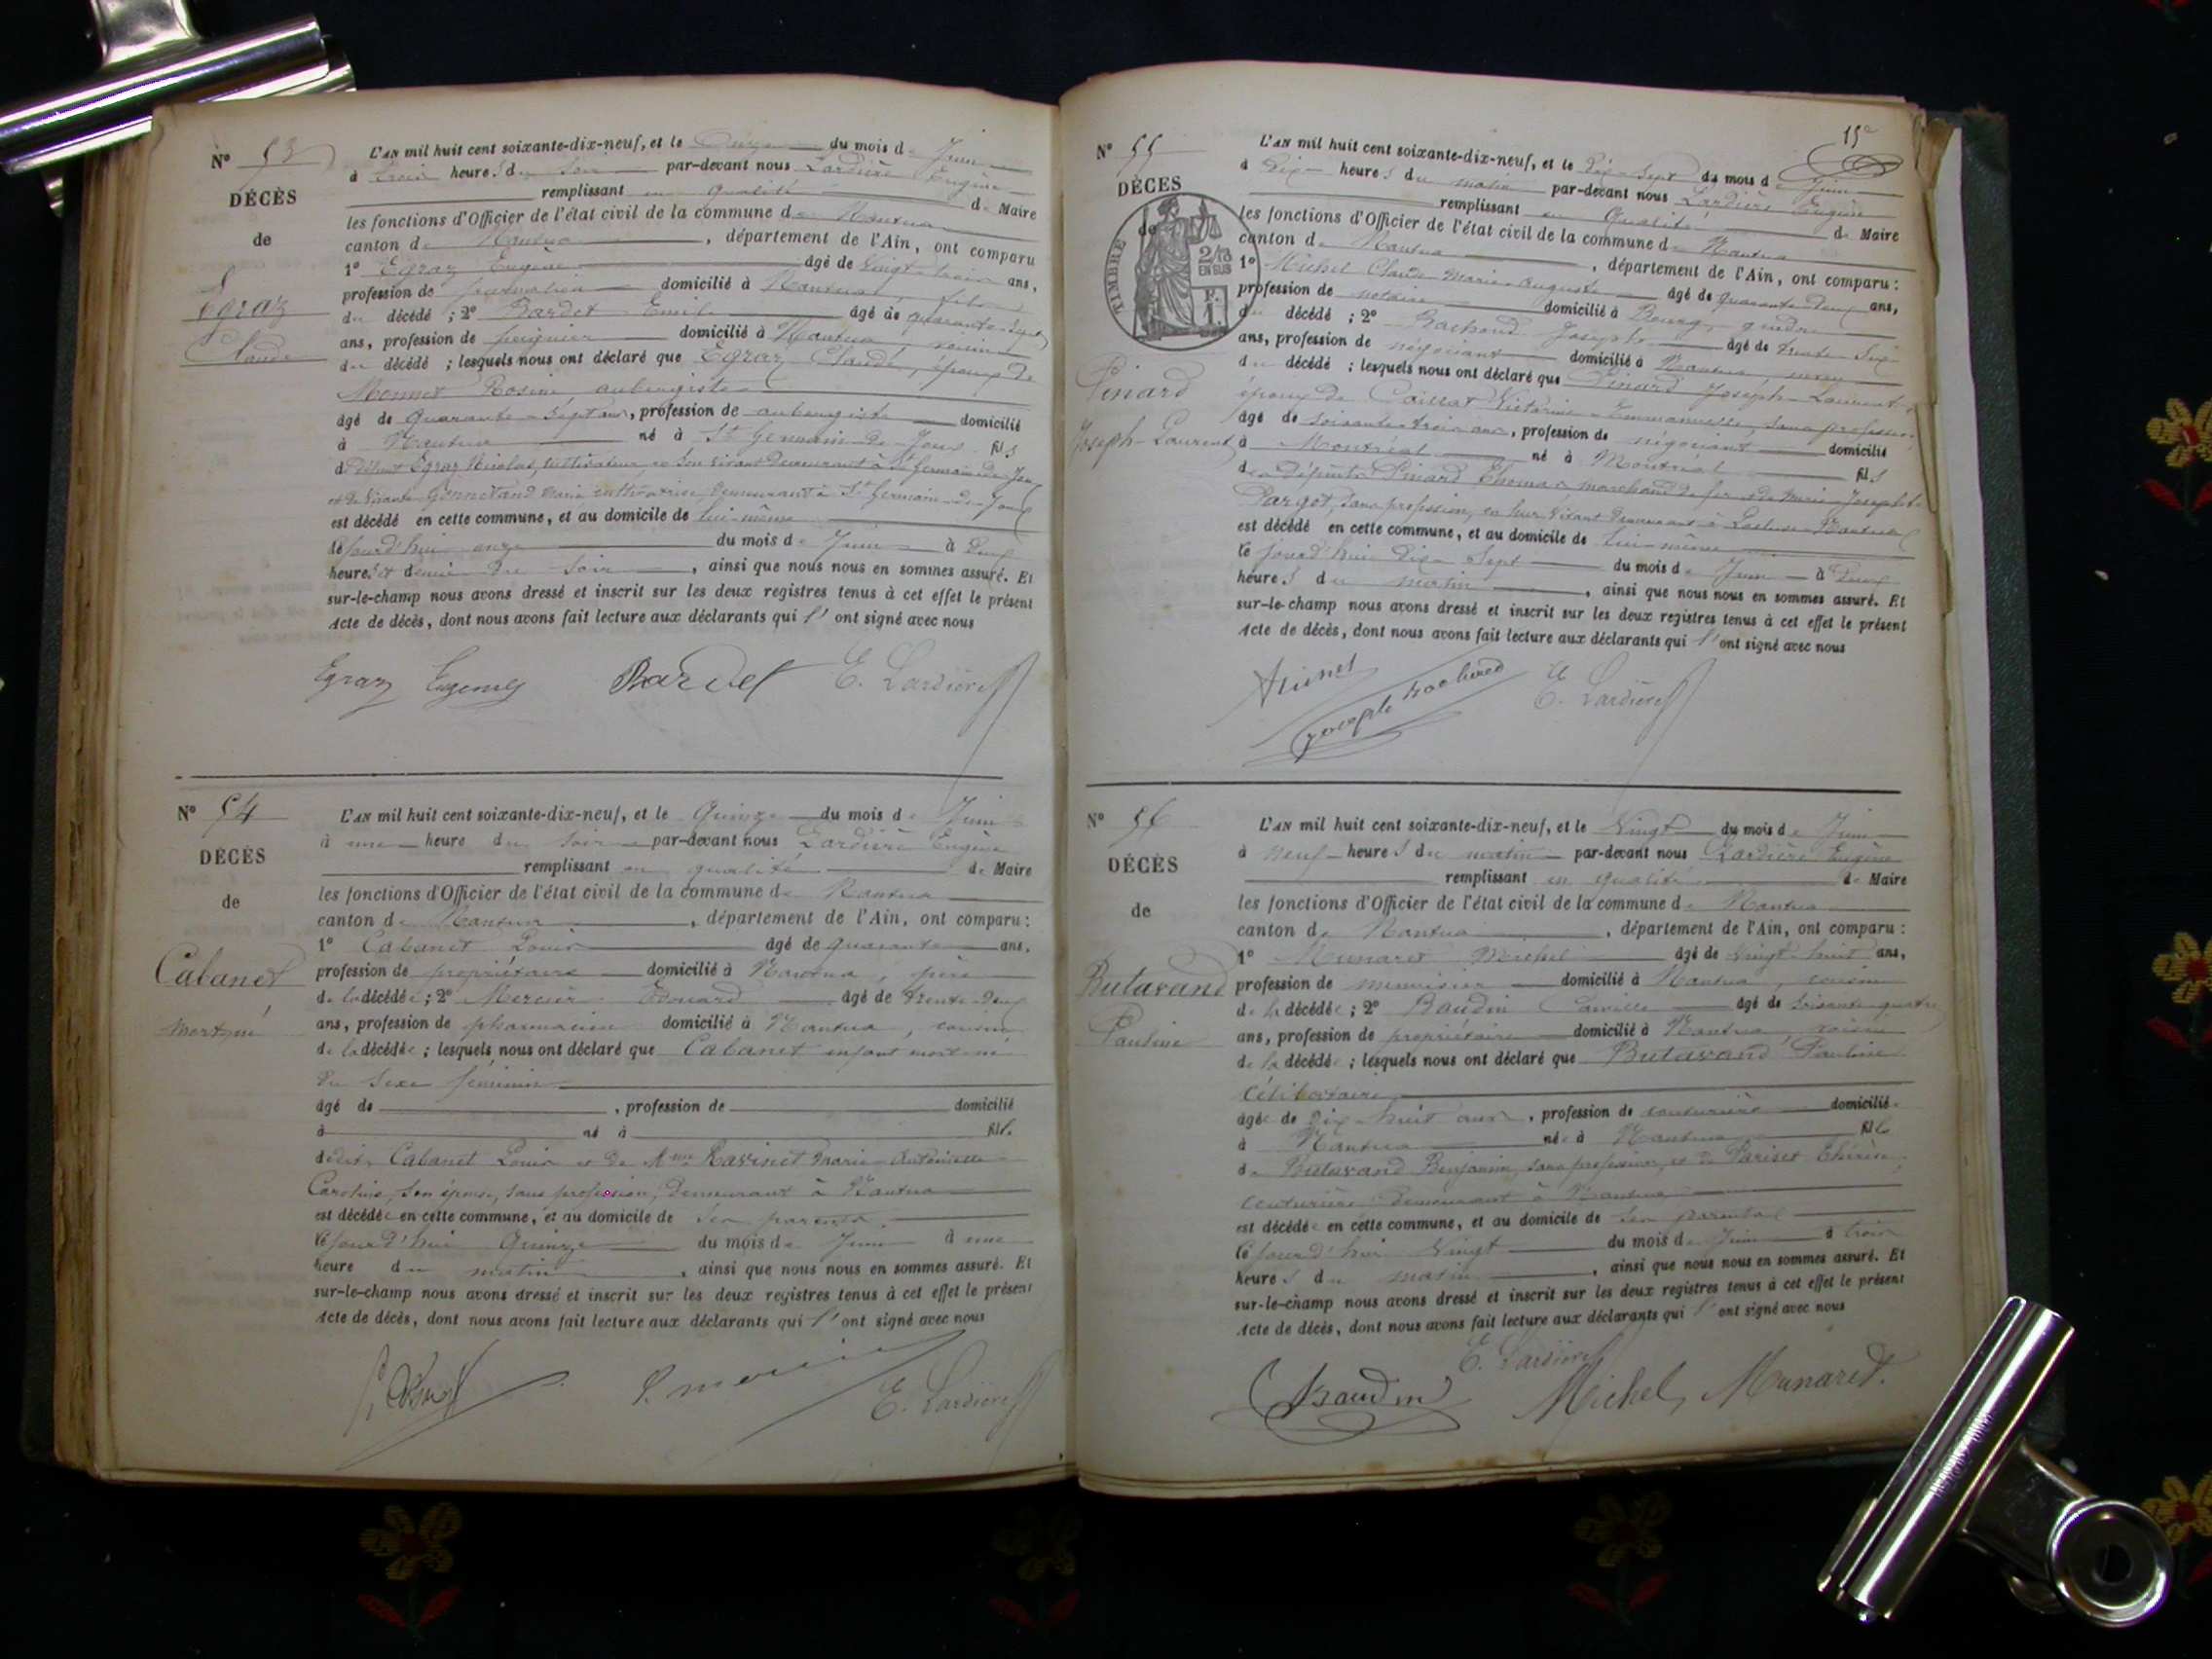 N° 53
DÉCÈS
de
Egraz
Claude
L'AN mil huit cent soixante-dix-neuf, et le du mois de Juin
à trois heures du soir par-devant nous Lardière Eugène
remplissant en qualité de Maire
les fonctions d'Officier de l'état civil de la commune de Nantua
canton de Nantua, département de l'Ain, ont comparu
1° Egraz Eugène âgé de vingt-trois ans,
profession de journalier domicilié à Nantua, fils
du décédé ; 2° Bardet Emile âgé de quarante-sept
ans, profession de peignier domicilié à Nantua, voisin
du décédé ; lesquels nous ont déclaré que Egraz Claude, époux de
Monnet Rosine aubergiste
âgé de quarante-sept ans, profession de aubergiste domicilié
à Nantua né à St Germain-de-Joux fils
de défunt Egraz Nicolas, cultivateur en son vivant demeurant à St Germain-de-Joux
et de vivante Marie cultivatrice, demeurant à St Germain-de-Joux
est décédé en cette commune, et au domicile de lui-même
le jourd'hui onze du mois de Juin à deux
heures et demie du soir, ainsi que nous nous en sommes assuré. Et
sur-le-champ nous avons dressé et inscrit sur les deux registres tenus à cet effet le présent
Acte de décès, dont nous avons fait lecture aux déclarants qui l'ont signé avec nous
Egraz Eugene Bardet E. Lardière
N° 54
DÉCÈS
de
Cabanet
mort-né
L'AN mil huit cent soixante-dix-neuf, et le Quinze du mois de Juin
à une heure du soir par-devant nous Lardière Eugène
remplissant en qualité de Maire
les fonctions d'Officier de l'état civil de la commune de Nantua
canton de Nantua, département de l'Ain, ont comparu :
1° Cabanet Louis âgé de quarante ans,
profession de propriétaire domicilié à Nantua, père
de la décédée ; 2° Mercier Edouard âgé de trente-deux
ans, profession de pharmacien domicilié à Nantua, cousin
de la décédée ; lesquels nous ont déclaré que Cabanet enfant mort-né
du sexe féminin
âgé de , profession de domicilié
à né à fille
dedit Cabanet Louis et de Mme Ravinet Marie-Antoinette
Caroline, son épouse, sans profession, demeurant à Nantua
est décédée en cette commune, et au domicile de ses parents
le jourd'hui Quinze du mois de Juin à une
heure du matin, ainsi que nous nous en sommes assuré. Et
sur-le-champ nous avons dressé et inscrit sur les deux registres tenus à cet effet le présent
Acte de décès, dont nous avons fait lecture aux déclarants qui l'ont signé avec nous
E. Lardière
15e
N° 55
DÉCÈS
de
TIMBRE
2/10
EN SUS
Pinard
Joseph-Laurent
L'AN mil huit cent soixante-dix-neuf, et le Dix-Sept du mois de Juin
à Dix heures du matin par-devant nous Lardière Eugène
remplissant en Qualité de Maire
les fonctions d'Officier de l'état civil de la commune de Nantua
canton de Nantua, département de l'Ain, ont comparu :
1° Michel Claude Marie Auguste âgé de quarante-deux ans,
profession de notaire domicilié à Bourg, gendre
du décédé ; 2° Bachod Joseph âgé de trente-six
ans, profession de négociant domicilié à Nantua, neveu
du décédé ; lesquels nous ont déclaré que Pinard Joseph-Laurent
époux de Caillat Victorine-Emmanuelle, sans profession
âgé de soixante-trois ans, profession de négociant domicilié
à Montréal né à Montréal fils
de défunts Pinard Thomas marchand de fer et de Marie-Josephte
Pargot, sans profession, en leur vivant demeurant à Nantua
est décédé en cette commune, et au domicile de lui-même
le jourd'hui Dix-Sept du mois de Juin à Deux
heures du matin, ainsi que nous nous en sommes assuré. Et
sur-le-champ nous avons dressé et inscrit sur les deux registres tenus à cet effet le présent
Acte de décès, dont nous avons fait lecture aux déclarants qui l'ont signé avec nous
Joseph E. Lardière
N° 56
DÉCÈS
de
Butavand
Pauline
L'AN mil huit cent soixante-dix-neuf, et le Vingt du mois de Juin
à Neuf heures du matin par-devant nous Lardière Eugène
remplissant en qualité de Maire
les fonctions d'Officier de l'état civil de la commune de Nantua
canton de Nantua, département de l'Ain, ont comparu :
1° Munaret Michel âgé de vingt-huit ans,
profession de menuisier domicilié à Nantua, cousin
de la décédée ; 2° Baudin Camille âgé de soixante-quatre
ans, profession de propriétaire domicilié à Nantua, voisin
de la décédée ; lesquels nous ont déclaré que Butavand Pauline
célibataire
âgée de Dix-huit ans, profession de couturière domicilié
à Nantua née à Nantua fille
de Butavand Benjamin, sans profession, et de Pariset Thérèse,
couturière demeurant à Nantua
est décédée en cette commune, et au domicile de ses parents
le jourd'hui Vingt du mois de Juin à trois
heures du matin, ainsi que nous nous en sommes assuré. Et
sur-le-champ nous avons dressé et inscrit sur les deux registres tenus à cet effet le présent
Acte de décès, dont nous avons fait lecture aux déclarants qui l'ont signé avec nous
E. Lardière
Baudin Michel Munaret.